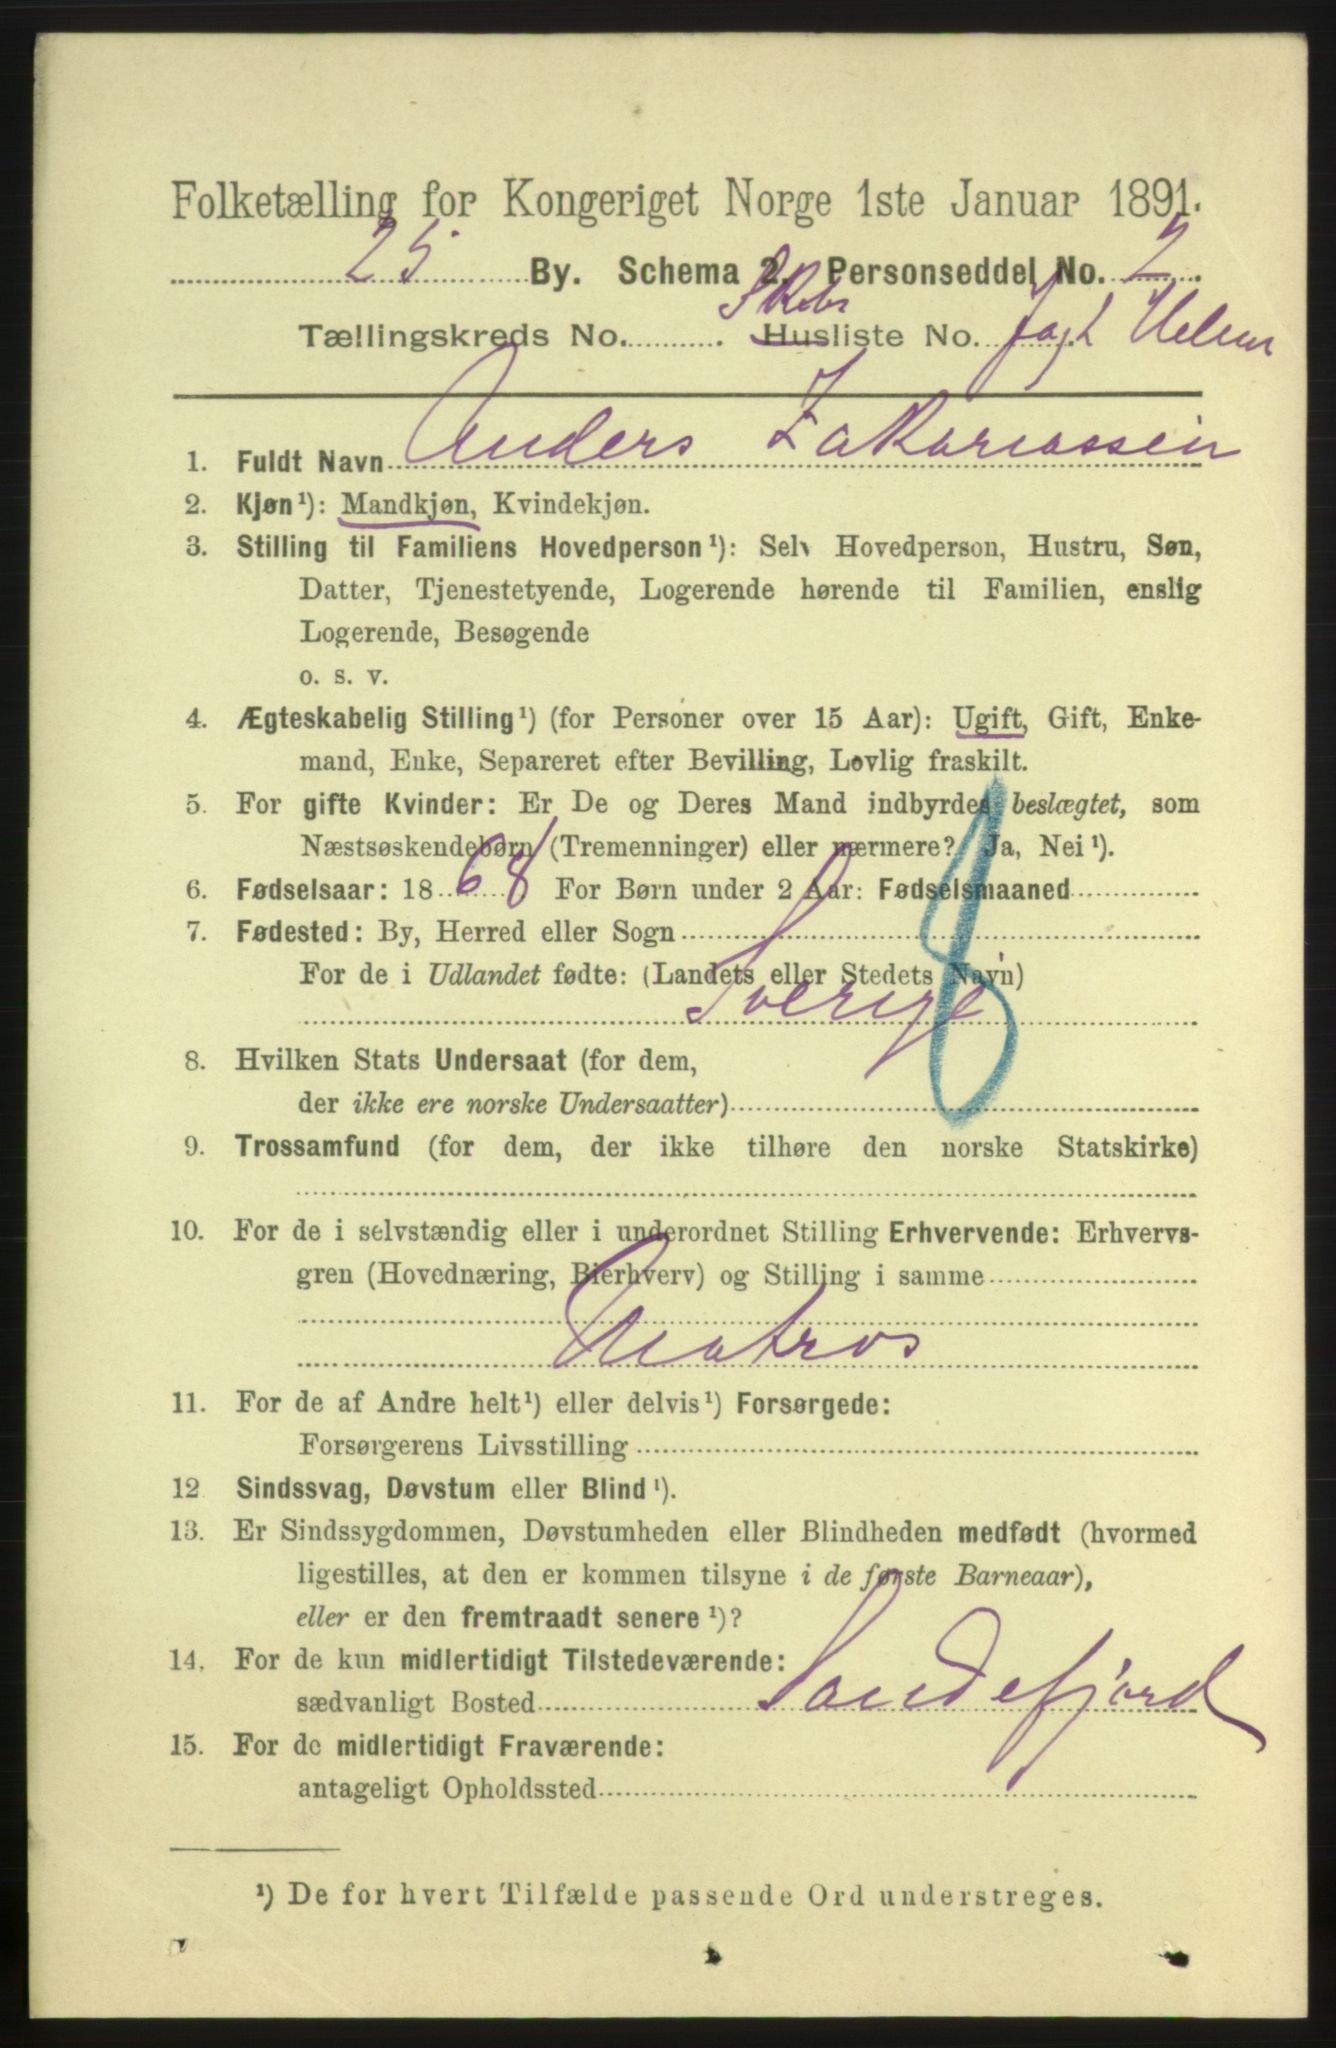 Folketælling for Kongeriget Norge 1ste Januar 1891.
25 By. Schema 2. Personseddel No. 2.
Skibs
Tællingskreds No. . Husliste No. Jagt
1. Fuldt Navn Anders Zakariassen
2. Kjøn¹): Mandkjøn, Kvindekjøn.
3. Stilling til Familiens Hovedperson¹): Selv Hovedperson, Hustru, Søn,
Datter, Tjenestetyende, Logerende hørende til Familien, enslig
Logerende, Besøgende
o. s. v.
4. Ægteskabelig Stilling¹) (for Personer over 15 Aar): Ugift, Gift, Enke-
mand, Enke, Separeret efter Bevilling, Lovlig fraskilt.
5. For gifte Kvinder: Er De og Deres Mand indbyrdes beslægtet, som
Næstsøskendebørn (Tremenninger) eller nærmere? Ja, Nei¹).
6. Fødselsaar: 1868 For Børn under 2 Aar: Fødselsmaaned
7. Fødested: By, Herred eller Sogn
For de i Udlandet fødte: (Landets eller Stedets Navn)
Sverige
8. Hvilken Stats Undersaat (for dem,
der ikke ere norske Undersaatter)
9. Trossamfund (for dem, der ikke tilhøre den norske Statskirke)
10. For de i selvstændig eller i underordnet Stilling Erhvervende: Erhvervs-
gren (Hovednæring, Bierhverv) og Stilling i samme
Matros
11. For de af Andre helt¹) eller delvis¹) Forsørgede:
Forsørgerens Livsstilling
12 Sindssvag, Døvstum eller Blind¹).
13. Er Sindssygdommen, Døvstumheden eller Blindheden medfødt (hvormed
ligestilles, at den er kommen tilsyne i de første Barneaar),
eller er den fremtraadt senere¹)?
14. For de kun midlertidigt Tilstedeværende:
sædvanligt Bosted Sandefjord
15. For de midlertidigt Fraværende:
antageligt Opholdssted
¹) De for hvert Tilfælde passende Ord understreges.